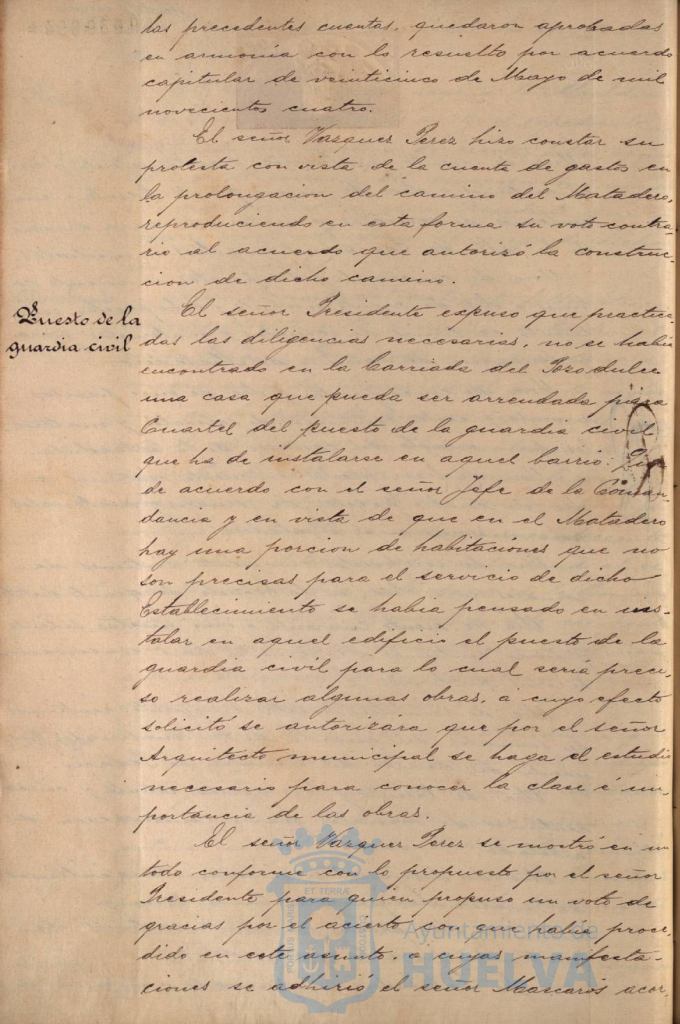 las precedentes cuentas, quedaron aprobadas
en armonía con lo resuelto por acuerdo
capitular de veinticinco de Mayo de mil
novecientos cuatro.
El señor Vazquez Perez hizo constar su
protesta con vista de la cuenta de gastos en
la prolongacion del camino del Matadero,
reproduciendo en esta forma su voto contra-
rio al acuerdo que autorizó la construc-
cion de dicho camino.
Puesto de la
guardia civil
El señor Presidente expuso que practica-
das las diligencias necesarias, no se había
encontrado en la barriada del Pozo dulce
una casa que pueda ser arrendada para
Cuartel del puesto de la guardia civil
que ha de instalarse en aquel barrio:
de acuerdo con el señor Jefe de la Coman-
dancia y en vista de que en el Matadero
hay una porcion de habitaciones que no
son precisas para el servicio de dicho
Establecimiento se habia pensado en ins-
talar en aquel edificio el puesto de la
guardia civil para lo cual sería preci-
so realizar algunas obras, á cuyo efecto
solicitó se autorizára que por el señor
Arquitecto municipal se haga el estudio
necesario para conocer la clase é im-
portancia de las obras.
El señor Vazquez Perez se mostró en un
todo conforme con lo propuesto por el señor
Presidente para quien propuso un voto de
gracias por el acierto con que habia proce-
dido en este asunto, a cuyas manifesta-
ciones se adhirió el señor Mascarós acor-
ET TERRÆ
Ayuntamiento de
HUELVA